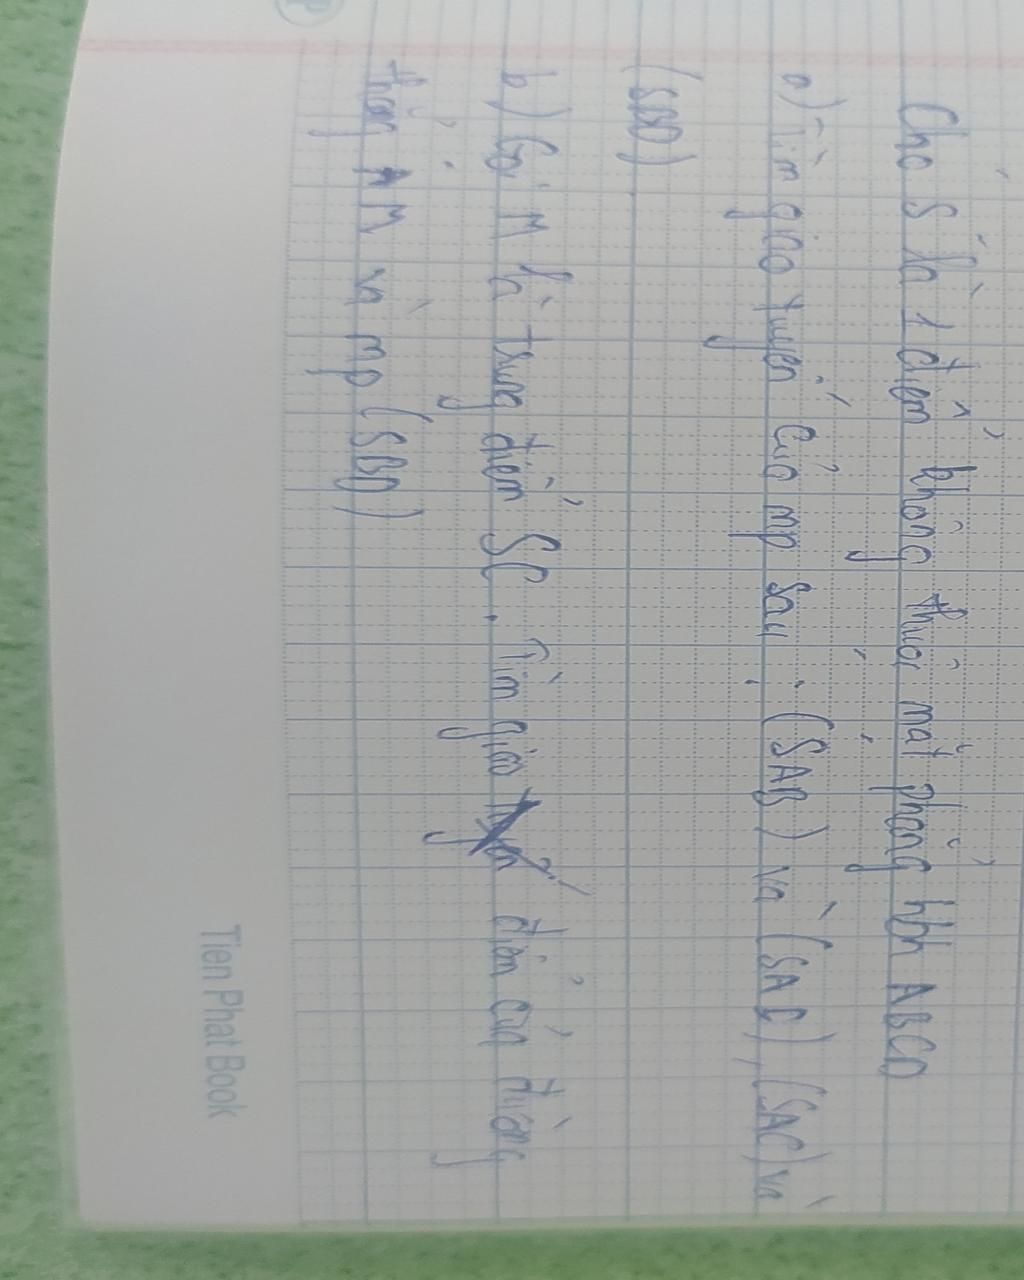 Cho S là 1 điểm không thuộc mặt phẳng hbh ABCD
a) Tìm giao tuyến của mp sau : (SAB) và (SAC), (SAC) và
(SBD)
b) Gọi M là trung điểm SC. Tìm giao tuyến điểm của đường
thẳng AM và mp (SBD)
Tien Phat Book